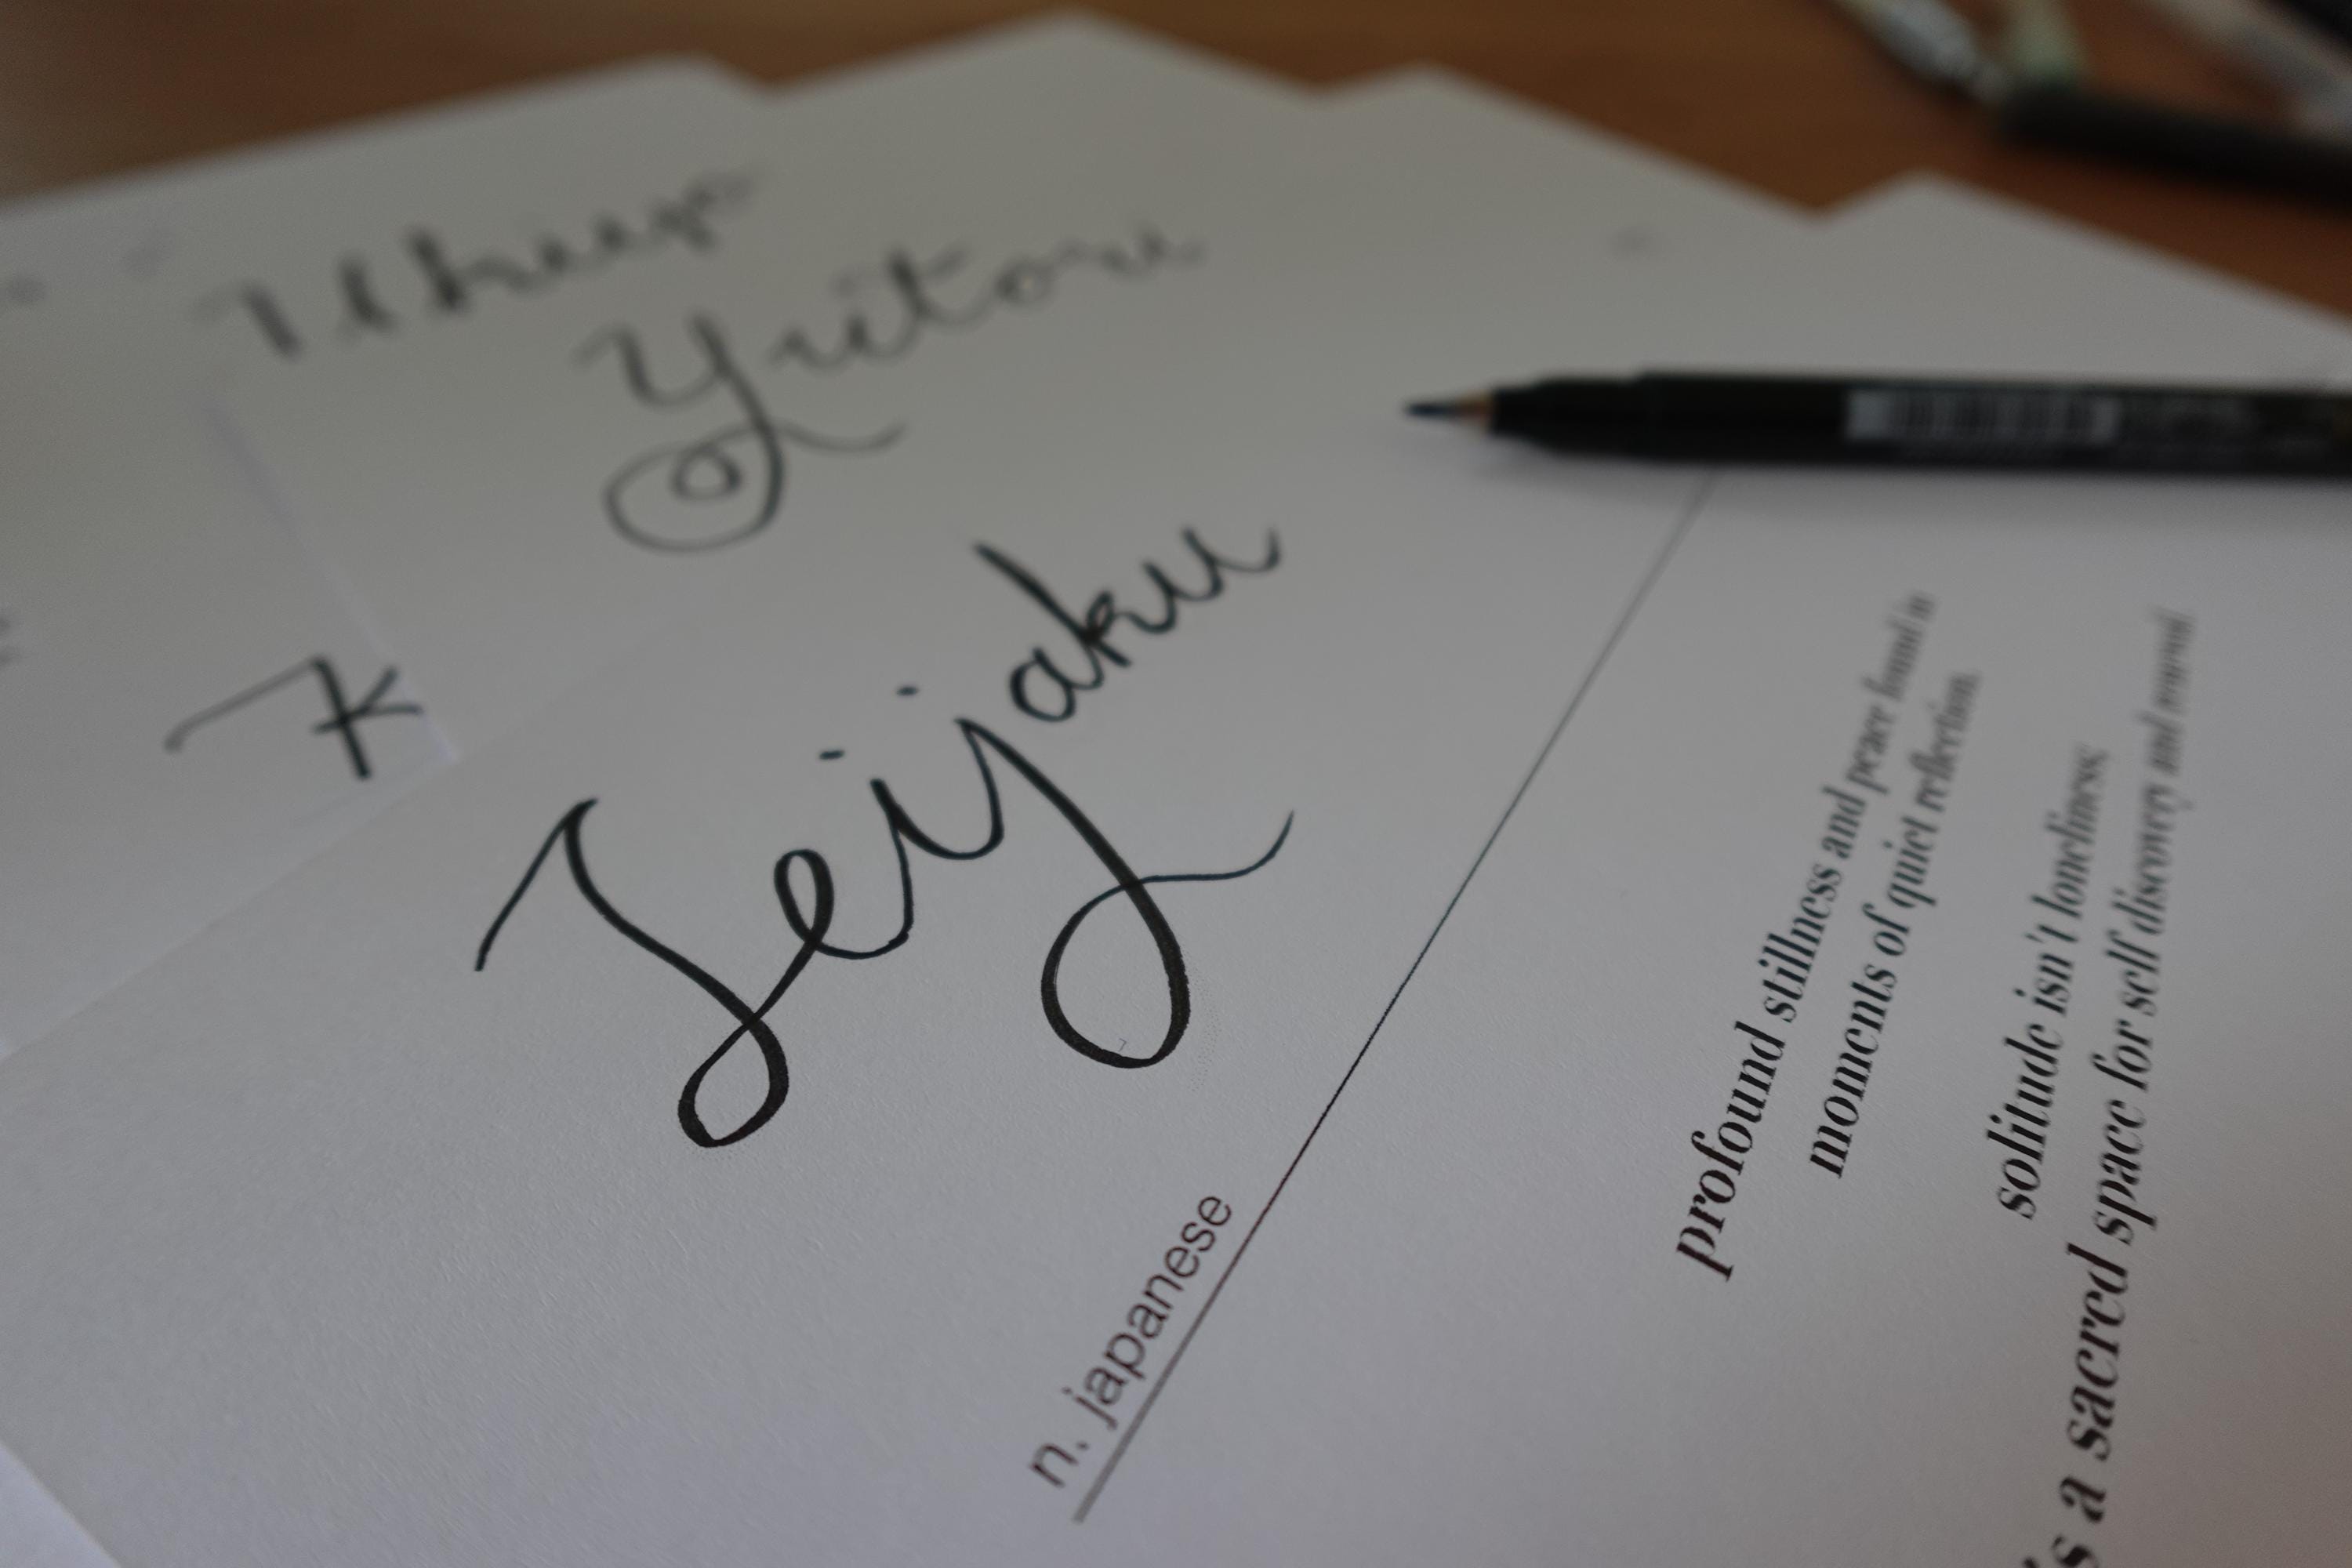 Yutori
Seijaku
n. japanese
profound stillness and peace found in
moments of quiet reflection.
solitude isn't loneliness;
is a sacred space for self discovery and